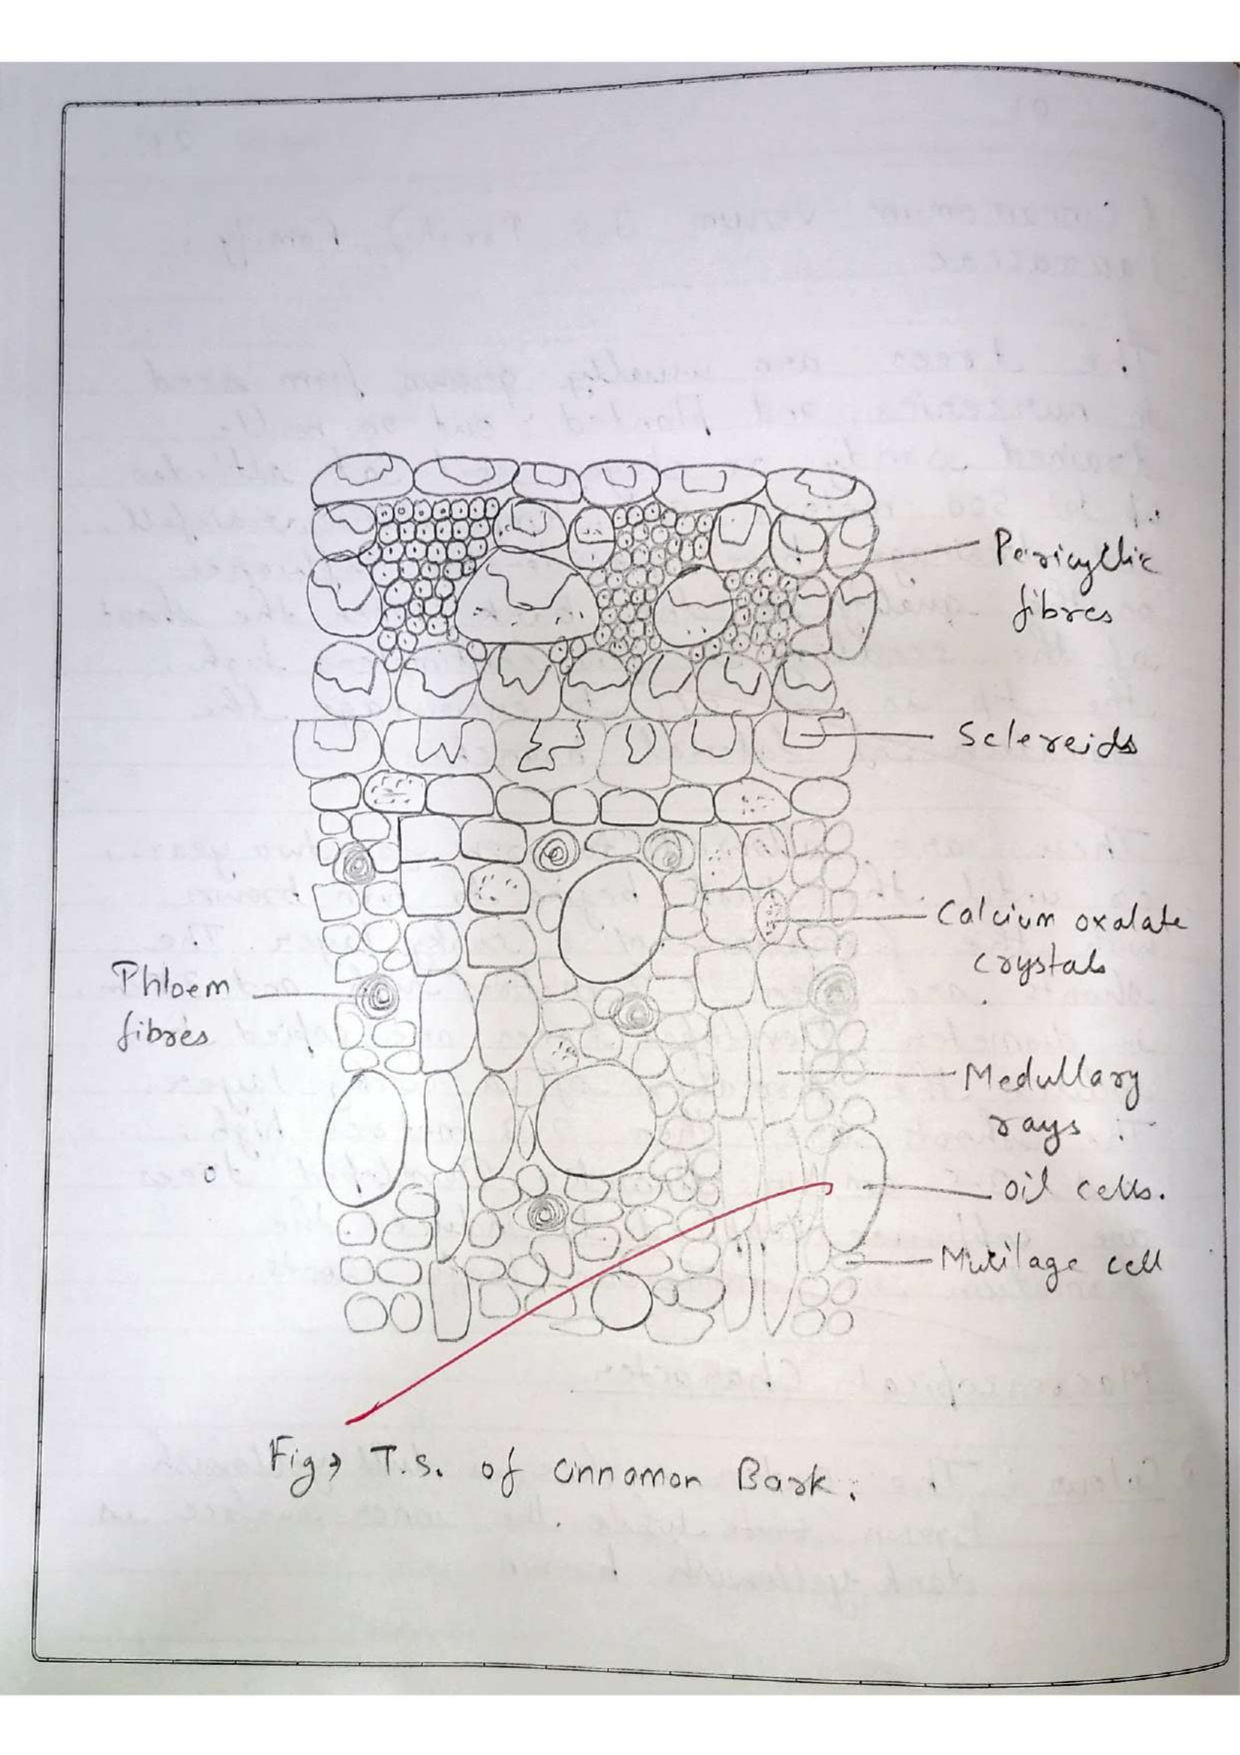 Pericyclic
fibres
Sclereids
Calcium oxalate
crystals
Phloem
fibres
Medullary
rays
oil cells.
Mucilage cell
Fig → T.S. of cinnamon Bark.